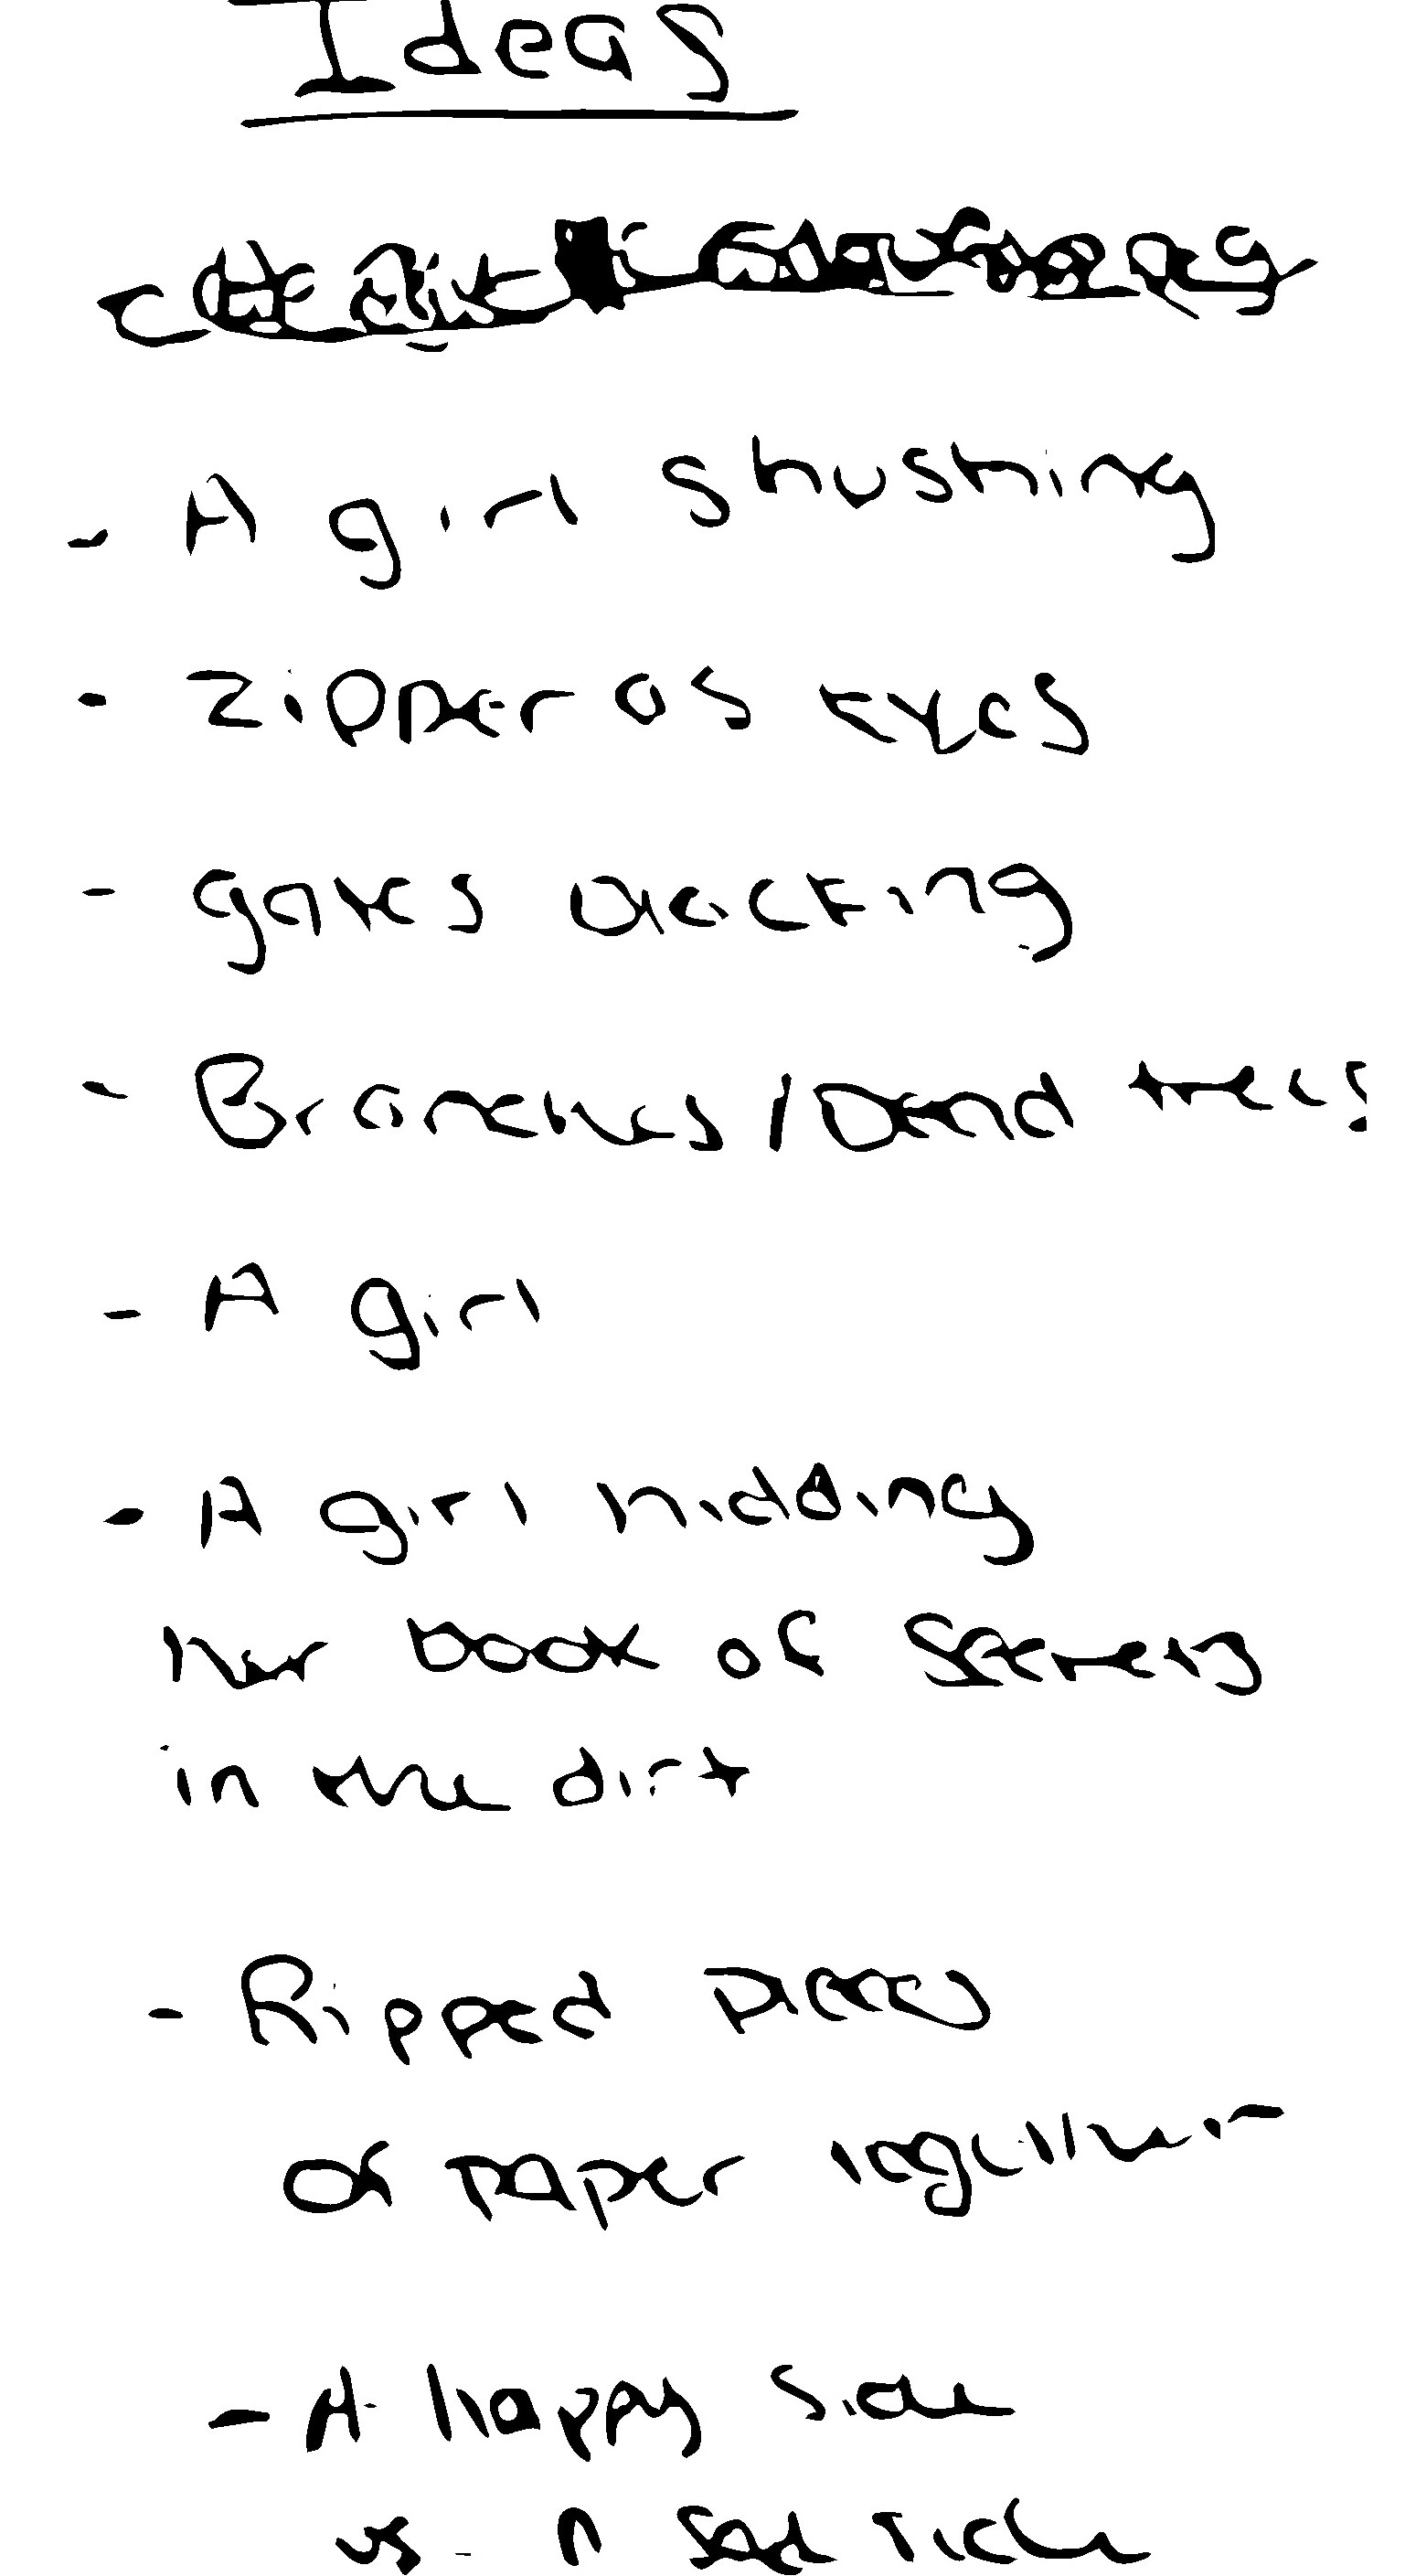 Ideas
- A girl shushing
- Zipper as eyes
- gates
- Branches / Dead trees
- A girl
- A girl hidding
her book of secrets
in the dirt
- Ripped pieces
of paper together
- A happy side
vs. A sad side